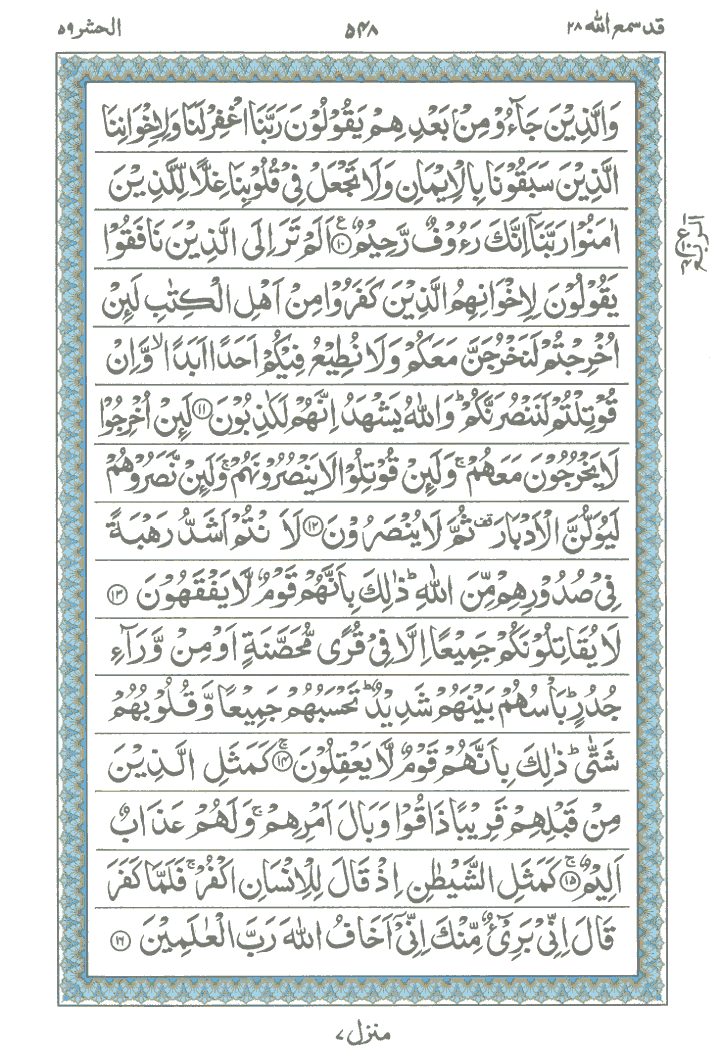 قد سمع الله ٢٨ ۵۴۸ الحشر ۵۹
وَالَّذِيْنَ جَآءُوْ مِنْۢ بَعْدِهِمْ يَقُوْلُوْنَ رَبَّنَا اغْفِرْ لَنَا وَلِاِخْوَانِنَا
الَّذِيْنَ سَبَقُوْنَا بِالْاِيْمَانِ وَلَا تَجْعَلْ فِيْ قُلُوْبِنَا غِلًّا لِّلَّذِيْنَ
اٰمَنُوْا رَبَّنَاۤ اِنَّكَ رَءُوْفٌ رَّحِيْمٌ ۧ﴿۱۰﴾ اَلَمْ تَرَ اِلَى الَّذِيْنَ نَافَقُوْا
يَقُوْلُوْنَ لِاِخْوَانِهِمُ الَّذِيْنَ كَفَرُوْا مِنْ اَهْلِ الْكِتٰبِ لَئِنْ
اُخْرِجْتُمْ لَنَخْرُجَنَّ مَعَكُمْ وَلَا نُطِيْعُ فِيْكُمْ اَحَدًا اَبَدًا ۙ وَّاِنْ
قُوْتِلْتُمْ لَنَنْصُرَنَّكُمْ ؕ وَاللّٰهُ يَشْهَدُ اِنَّهُمْ لَكٰذِبُوْنَ ﴿۱۱﴾ لَئِنْ اُخْرِجُوْا
لَا يَخْرُجُوْنَ مَعَهُمْ ۚ وَلَئِنْ قُوْتِلُوْا لَا يَنْصُرُوْنَهُمْ ۚ وَلَئِنْ نَّصَرُوْهُمْ
لَيُوَلُّنَّ الْاَدْبَارَ قف ثُمَّ لَا يُنْصَرُوْنَ ﴿۱۲﴾ لَاَ نْتُمْ اَشَدُّ رَهْبَةً
فِيْ صُدُوْرِهِمْ مِّنَ اللّٰهِ ؕ ذٰلِكَ بِاَنَّهُمْ قَوْمٌ لَّا يَفْقَهُوْنَ ﴿۱۳﴾
لَا يُقَاتِلُوْنَكُمْ جَمِيْعًا اِلَّا فِيْ قُرًى مُّحَصَّنَةٍ اَوْ مِنْ وَّرَآءِ
جُدُرٍ ؕ بَاْسُهُمْ بَيْنَهُمْ شَدِيْدٌ ؕ تَحْسَبُهُمْ جَمِيْعًا وَّقُلُوْبُهُمْ
شَتّٰى ؕ ذٰلِكَ بِاَنَّهُمْ قَوْمٌ لَّا يَعْقِلُوْنَ ۚ﴿۱۴﴾ كَمَثَلِ الَّذِيْنَ
مِنْ قَبْلِهِمْ قَرِيْبًا ذَاقُوْا وَبَالَ اَمْرِهِمْ ۚ وَلَهُمْ عَذَابٌ
اَلِيْمٌ ۚ﴿۱۵﴾ كَمَثَلِ الشَّيْطٰنِ اِذْ قَالَ لِلْاِنْسَانِ اكْفُرْ ۚ فَلَمَّا كَفَرَ
قَالَ اِنِّيْ بَرِيْٓءٌ مِّنْكَ اِنِّيْۤ اَخَافُ اللّٰهَ رَبَّ الْعٰلَمِيْنَ ﴿۱۶﴾
منزل ۷